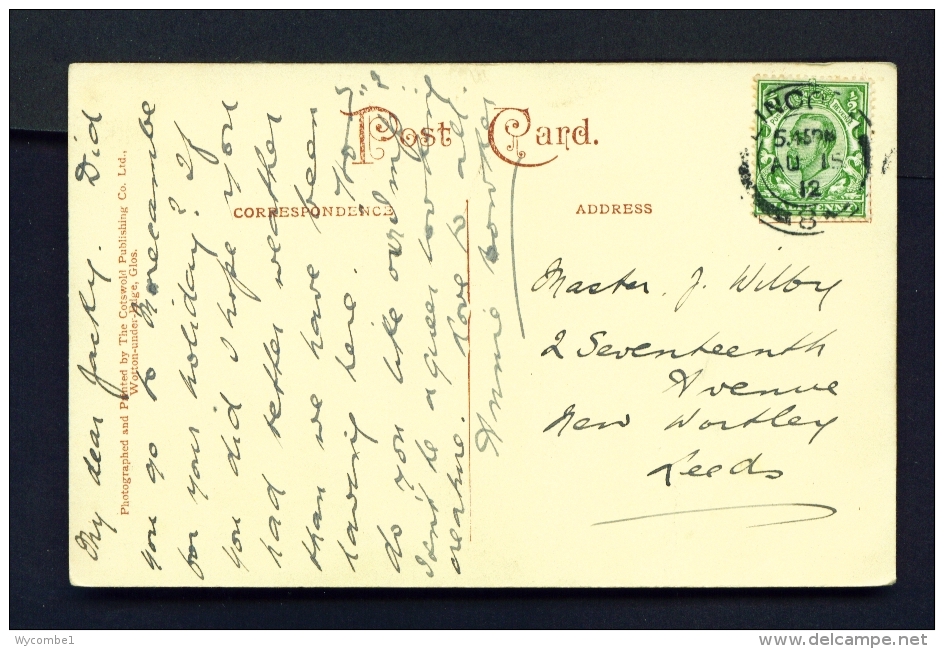 Post Card.
CORRESPONDENCE
ADDRESS
Photographed and Printed by The Cotswold Publishing Co. Ltd.,
Wotton-under-Edge, Glos.
My dear Jacky. Did
you go to Morecambe
for your holiday? If
you did I hope you
had better weather
than we have been
having here. How
do you like our mill??
Isn't he a queer looking
creature. Love to all.
Annie
Master. J. Wilby
2 Seventeenth
Avenue
New Wortley
Leeds
5.45PM
AU 15
12
8
Wycombe1
delcampe.net